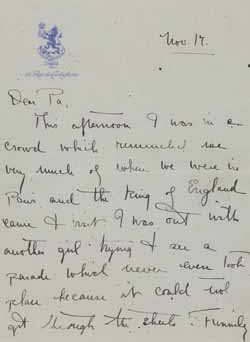 Nov. 17.
Dear Pa,
This afternoon I was in a
crowd which reminded me
very much of when we were in
Paris and the King of England
came & I was out with
another girl trying to see a
parade which never even took
place because it could not
get through the streets. Finally